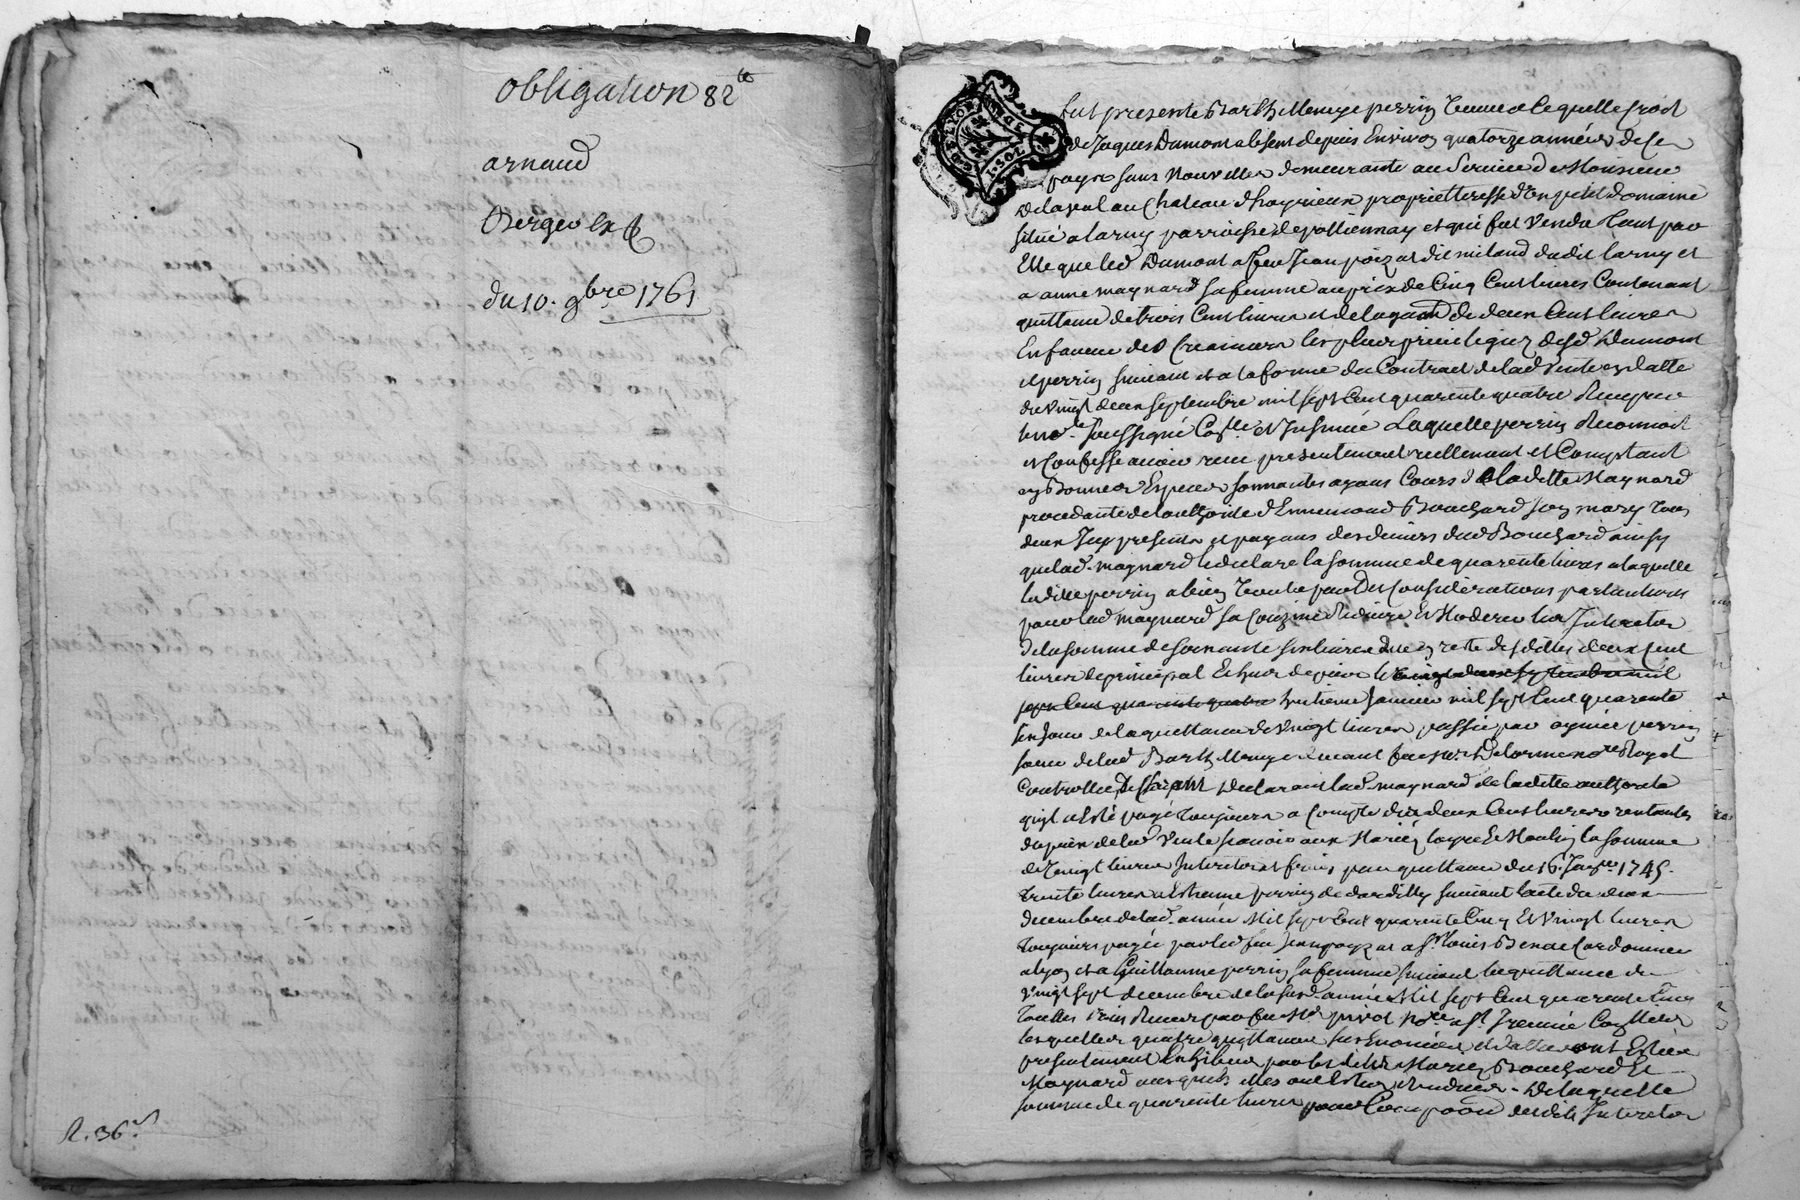 obligation 82lt
arnaud
Berger
du 10. 9bre 1761
R. 36 s
fut presente Barthelemye perrin femme
de Jaques Dumont absent depuis Environ quatorze années de Ce
pays sans Nouvelles demeurante au Service de Monsieur
Delaval au Chateau proprietteresse d'Un petit Domaine
situé a larny parroisse de pollionnay et qui fut Vendu Tant par
Elle que led Dumont a feu Jean poizat dit miland dudit larny et
a anne maynard sa femme au prix de Cinq Cent livres Contenant
quittance de trois Cent livres et delegaon de deux Cent livres
En faveur des Creanciers les plus privilegiez desd Dumont
et perrin suivant et a la forme du Contract de lad Vente en datte
du Vingt deux septembre mil sept Cent quarente quatre Receu par
le nore soussigné Collé et Insinué Laquelle perrin Reconnoit
et Confesse avoir receu presentement reellement et Comptant
en Bonnes Especes sonnantes ayans Cours de ladette Maynard
procedante de l'authorité d'Ennemond Bouchard son mary Tous
deux Icy presents et payans des deniers dud Bouchard ainsy
que lad. maynard le declare la somme de quarente livres a laquelle
ladite perrin a bien Voulu par Des Considérations particulieres
pour lad maynard sa Couzine Reduire Et Moderer les Interetz
de la somme de soixante six livres due en reste desdittes deux Cent
livres de principal Echus depuis le vingt deux septembre mil
sept Cent quarente quatre huitieme Janvier mil sept Cent quarente
six Jour de la quittance de Vingt livres passée par aymée perrin
soeur de lad Barthelemye Receue par Me Delorme nore Royal
Controllée Declarant lad maynard de ladette authorité
qu'il a Eté payé Toujours a Compte des deux Cent livres restantes
du prix de lad Vente scavoir aux Mariez layre Et Moulin la somme
de Vingt livres Interetz et frais par quittance du 16 1745.
trente livres a Etienne perrin de dardilly suivant l'acte du deux
decembre de lad. année Mil sept Cent quarente Cinq Et Vingt livres
Toujours payée par led feu Jean poyzat a Sr louis Benac Cordonnier
a lyon et a Guillaumme perrin sa femme suivant la quittance du
Vingt sept decembre de la susd. année Mil sept Cent quarente Cinq
Touttes Trois Receues par feu Me privot Nore a St Irennée Collées
lesquelles quatre quittances sus Enoncées et dattée ont Estée
presentement Exhibées par lesdits Mariez Bouchard Et
Maynard auxquels elles ont Estez Rendues. De laquelle
somme de quarente livres pour Composaon desdits Interetz